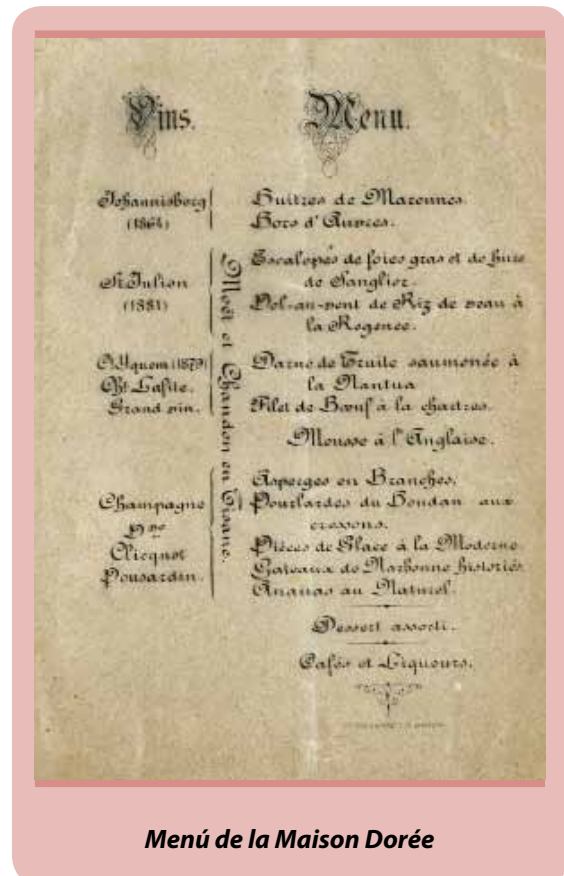 Vins.
Johannisberg
(1864)
St. Julien
(1881)
O. Yquem (1879)
Ch. Lafite.
Grand vin.
Champagne
Vve
Clicquot
Pousardin.
Moët et Chandon en Tisane.
Menu.
Huîtres de Marennes.
Hors d'Auvres.
Escalopes de foies gras et de hure
de Sanglier.
Vol-au-vent de Riz de veau à
la Regence.
Darne de Truite saumonée à
la Nantua
Filet de Bœuf à la chartres.
Mousse à l'Anglaise.
Asperges en Branches.
Pourlardes du Houdan aux
cressons.
Pièces de Glace à la Moderne.
Gateaux de Narbonne historiés
Ananas au Naturel.
Dessert assorti.
Cafés et Liqueurs.
Menú de la Maison Dorée